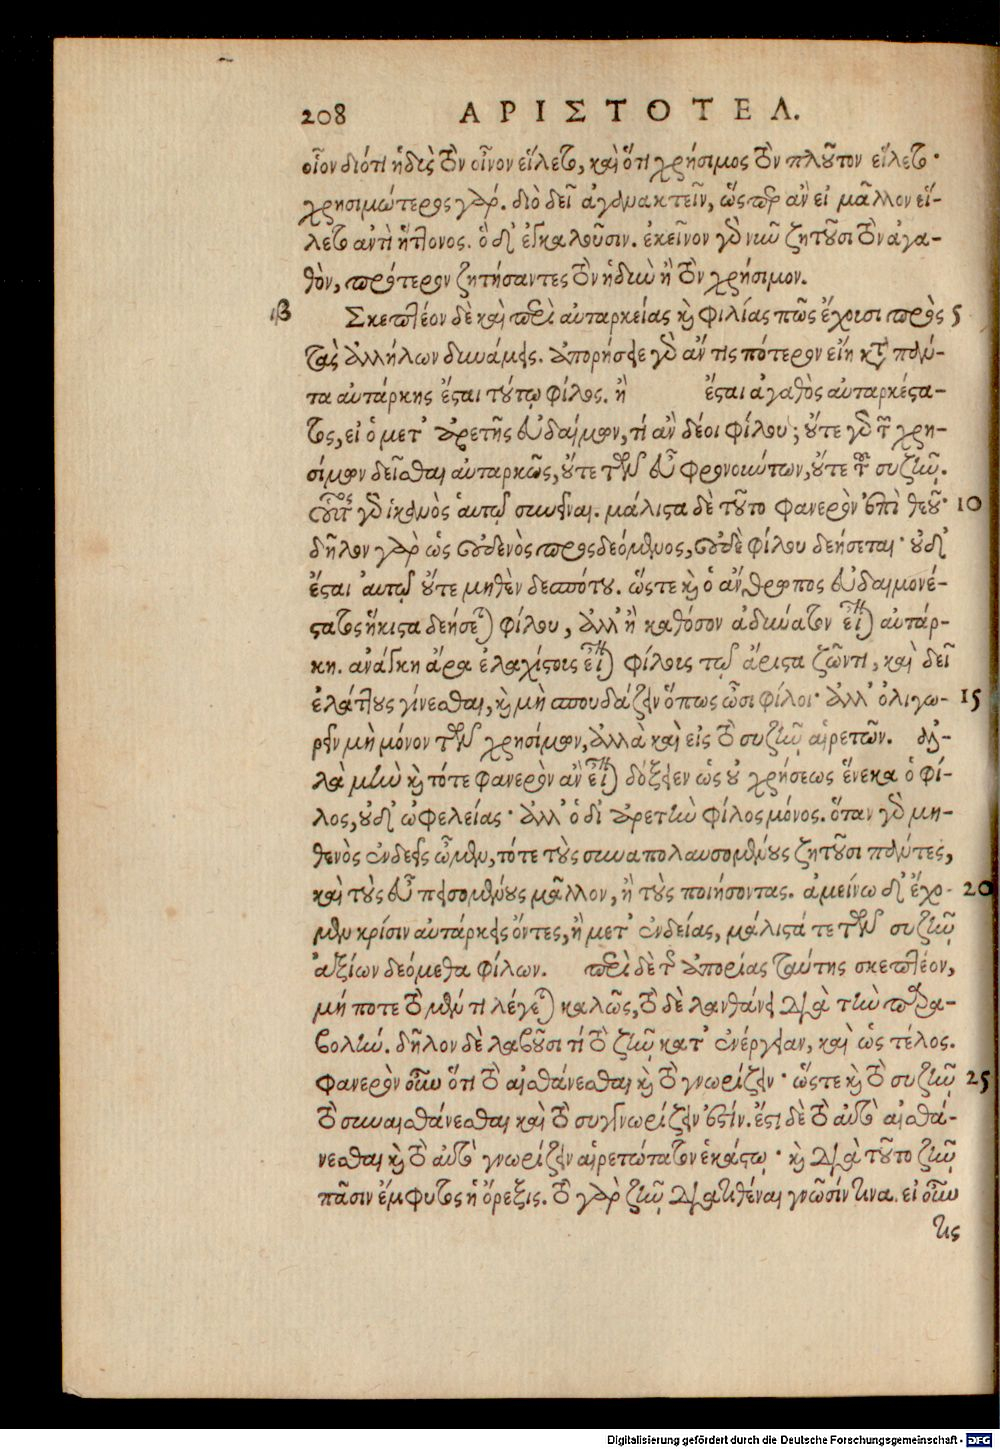 208 ΑΡΙΣΤΟΤΕΛ.
οἷον διότι ἡδὺς τὸν οἶνον εἵλετο, καὶ ὅτι χρήσιμος τὸν πλοῦτον εἵλετο·
χρησιμώτερος γάρ. διὸ δεῖ ἀγανακτεῖν, ὥσπερ ἂν εἰ μᾶλλον εἵ-
λετο ἀντὶ ἥττονος. ὁ δ' ἐγκαλοῦσιν. ἐκεῖνον γὰρ νῦν ζητοῦσι τὸν ἀγα-
θὸν, πρότερον ζητήσαντες τὸν ἡδὺν ἢ τὸν χρήσιμον.
ιβ Σκεπτέον δὲ καὶ περὶ αὐταρκείας καὶ φιλίας πῶς ἔχουσι πρὸς 5
τὰς ἀλλήλων δυνάμεις. ἀπορήσειε γὰρ ἄν τις πότερον εἴη κατὰ πάν-
τα αὐτάρκης ἔσται τούτῳ φίλος. ἢ ἔσται ἀγαθὸς αὐταρκέστα-
τος, εἰ ὁ μετ' ἀρετῆς εὐδαίμων, τί ἂν δέοι φίλου; οὔτε γὰρ τῶν χρη-
σίμων δεῖσθαι αὐταρκῶς, οὔτε τῶν εὐφρονούντων, οὔτε τοῦ συζῆν.
γὰρ ἱκανὸς ἑαυτῷ συνεῖναι. μάλιστα δὲ τοῦτο φανερὸν ἐπὶ θεοῦ· 10
δῆλον γὰρ ὡς οὐδενὸς προσδεόμενος, οὐδὲ φίλου δεήσεται· οὐδ'
ἔσται αὐτῷ οὔτε μηθὲν δεσπότου. ὥστε καὶ ὁ ἄνθρωπος εὐδαιμονέ-
στατος ἥκιστα δεήσεται φίλου, ἀλλ' ἢ καθόσον ἀδύνατον εἶναι αὐτάρ-
κη. ἀνάγκη ἄρα ἐλαχίστοις εἶναι φίλοις τῷ ἄριστα ζῶντι, καὶ δεῖ
ἐλάττους γίνεσθαι, καὶ μὴ σπουδάζειν ὅπως ὦσι φίλοι· ἀλλ' ὀλιγω- 15
ρεῖν μὴ μόνον τῶν χρησίμων, ἀλλὰ καὶ εἰς τὸ συζῆν αἱρετῶν. ἀλ-
λὰ μὴν καὶ τότε φανερὸν ἂν εἶναι δόξειεν ὡς οὐ χρήσεως ἕνεκα ὁ φί-
λος, οὐδ' ὠφελείας· ἀλλ' ὁ δι' ἀρετὴν φίλος μόνος. ὅταν γὰρ μη-
θενὸς ἐνδεεῖς ὦμεν, τότε τοὺς συναπολαυσομένους ζητοῦσι πάντες,
καὶ τοὺς εὖ πεισομένους μᾶλλον, ἢ τοὺς ποιήσοντας. ἀμείνω δ' ἔχο- 20
μεν κρίσιν αὐτάρκεις ὄντες, ἢ μετ' ἐνδείας, μάλιστά τε τῶν συζῆν
ἀξίων δεόμεθα φίλων. περὶ δὲ τῆς ἀπορίας ταύτης σκεπτέον,
μή ποτε τὸ μέν τι λέγεται καλῶς, τὸ δὲ λανθάνει διὰ τὴν παρα-
βολήν. δῆλον δὲ λαβοῦσι τί τὸ ζῆν κατ' ἐνέργειαν, καὶ ὡς τέλος.
φανερὸν οὖν ὅτι τὸ αἰσθάνεσθαι καὶ τὸ γνωρίζειν· ὥστε καὶ τὸ συζῆν 25
τὸ συναισθάνεσθαι καὶ τὸ συγγνωρίζειν ἐστίν. ἔστι δὲ τὸ αὐτὸ αἰσθά-
νεσθαι καὶ τὸ αὐτὸ γνωρίζειν αἱρετώτατον ἑκάστῳ· καὶ διὰ τοῦτο ζῆν
πᾶσιν ἔμφυτος ἡ ὄρεξις. τὸ γὰρ ζῆν διατιθέναι γνῶσίν τινα. εἰ οὖν
τις
Digitalisierung gefördert durch die Deutsche Forschungsgemeinschaft - DFG